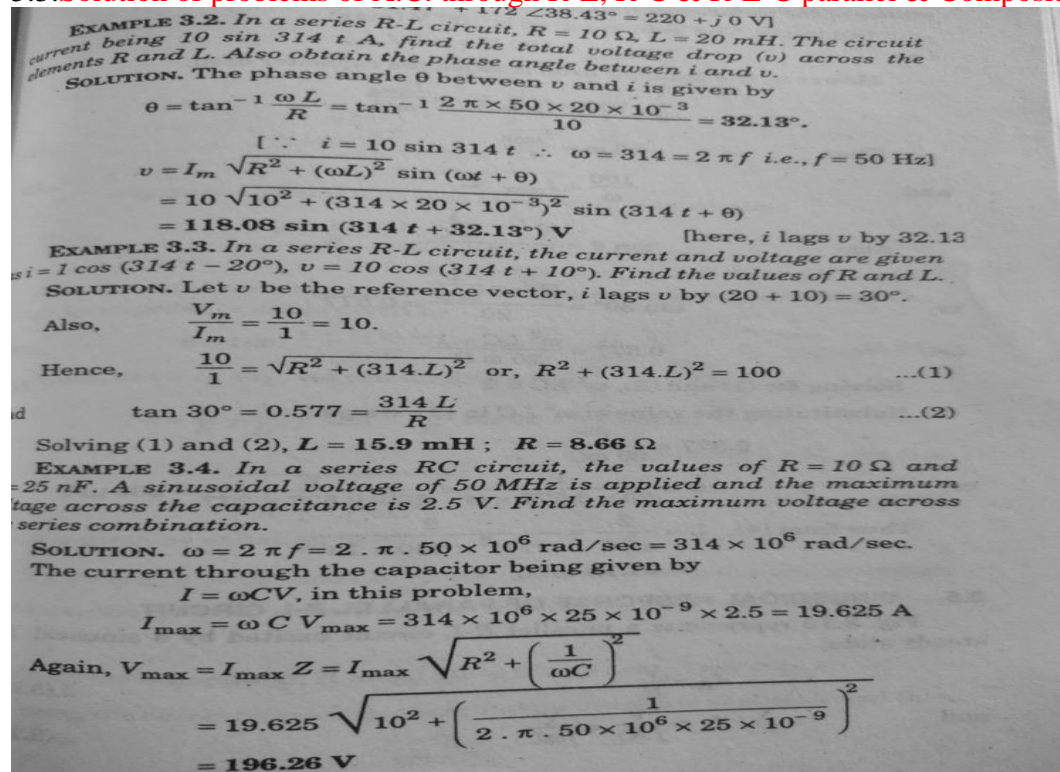 + 172 ∠38.43° = 220 + j 0 V]
EXAMPLE 3.2. In a series R-L circuit, R = 10 Ω, L = 20 mH. The circuit
current being 10 sin 314 t A, find the total voltage drop (υ) across the
elements R and L. Also obtain the phase angle between i and υ.
SOLUTION. The phase angle θ between υ and i is given by
θ = tan⁻¹ ωL/R = tan⁻¹ 2 π × 50 × 20 × 10⁻³/10 = 32.13°.
[∵ i = 10 sin 314 t ∴ ω = 314 = 2 π f i.e., f = 50 Hz]
υ = Iₘ √R² + (ωL)² sin (ωt + θ)
= 10 √10² + (314 × 20 × 10⁻³)² sin (314 t + θ)
= 118.08 sin (314 t + 32.13°) V [here, i lags υ by 32.13
EXAMPLE 3.3. In a series R-L circuit, the current and voltage are given
s i = 1 cos (314 t – 20°), υ = 10 cos (314 t + 10°). Find the values of R and L.
SOLUTION. Let υ be the reference vector, i lags υ by (20 + 10) = 30°.
Also, Vₘ/Iₘ = 10/1 = 10.
Hence, 10/1 = √R² + (314.L)² or, R² + (314.L)² = 100 ...(1)
d tan 30° = 0.577 = 314 L/R ...(2)
Solving (1) and (2), L = 15.9 mH ; R = 8.66 Ω
EXAMPLE 3.4. In a series RC circuit, the values of R = 10 Ω and
= 25 nF. A sinusoidal voltage of 50 MHz is applied and the maximum
tage across the capacitance is 2.5 V. Find the maximum voltage across
series combination.
SOLUTION. ω = 2 π f = 2 . π . 50 × 10⁶ rad/sec = 314 × 10⁶ rad/sec.
The current through the capacitor being given by
I = ωCV, in this problem,
Iₘₐₓ = ω C Vₘₐₓ = 314 × 10⁶ × 25 × 10⁻⁹ × 2.5 = 19.625 A
Again, Vₘₐₓ = Iₘₐₓ Z = Iₘₐₓ √R² + (1/ωC)²
= 19.625 √10² + (1/2 . π . 50 × 10⁶ × 25 × 10⁻⁹)²
= 196.26 V